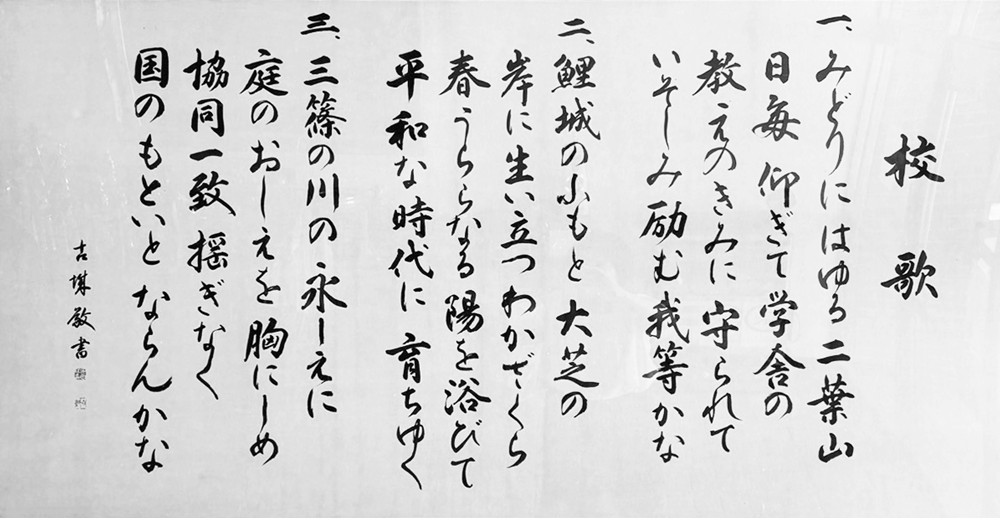 校歌
一、みどりにはゆる二葉山
日毎仰ぎて学舎の
教えのきみに守られて
いそしみ励む我等かな
二、鯉城のふもと大芝の
岸に生い立つわかざくら
春うららなる陽を浴びて
平和な時代に育ちゆく
三、三篠の川の永しえに
庭のおしえを胸にしめ
協同一致揺ぎなく
国のもといとならんかな
書